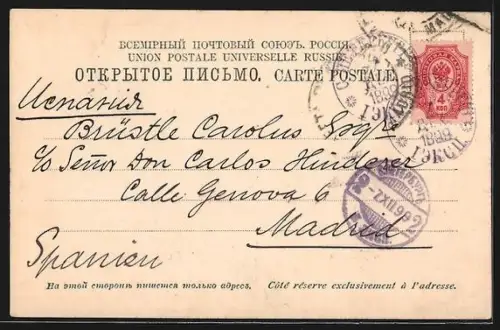 ВСЕМІРНЫЙ ПОЧТОВЫЙ СОЮЗЪ. РОССІЯ.
UNION POSTALE UNIVERSELLE RUSSIE.
ОТКРЫТОЕ ПИСЬМО. CARTE POSTALE.
4
КОП
Испания
Brüstle Carolus Esqre
c/o Señor Don Carlos Hinderer
Calle Genova 6
Madrid
Spanien
На этой сторонѣ пишется только адресъ. Côté réservé exclusivement à l'adresse.